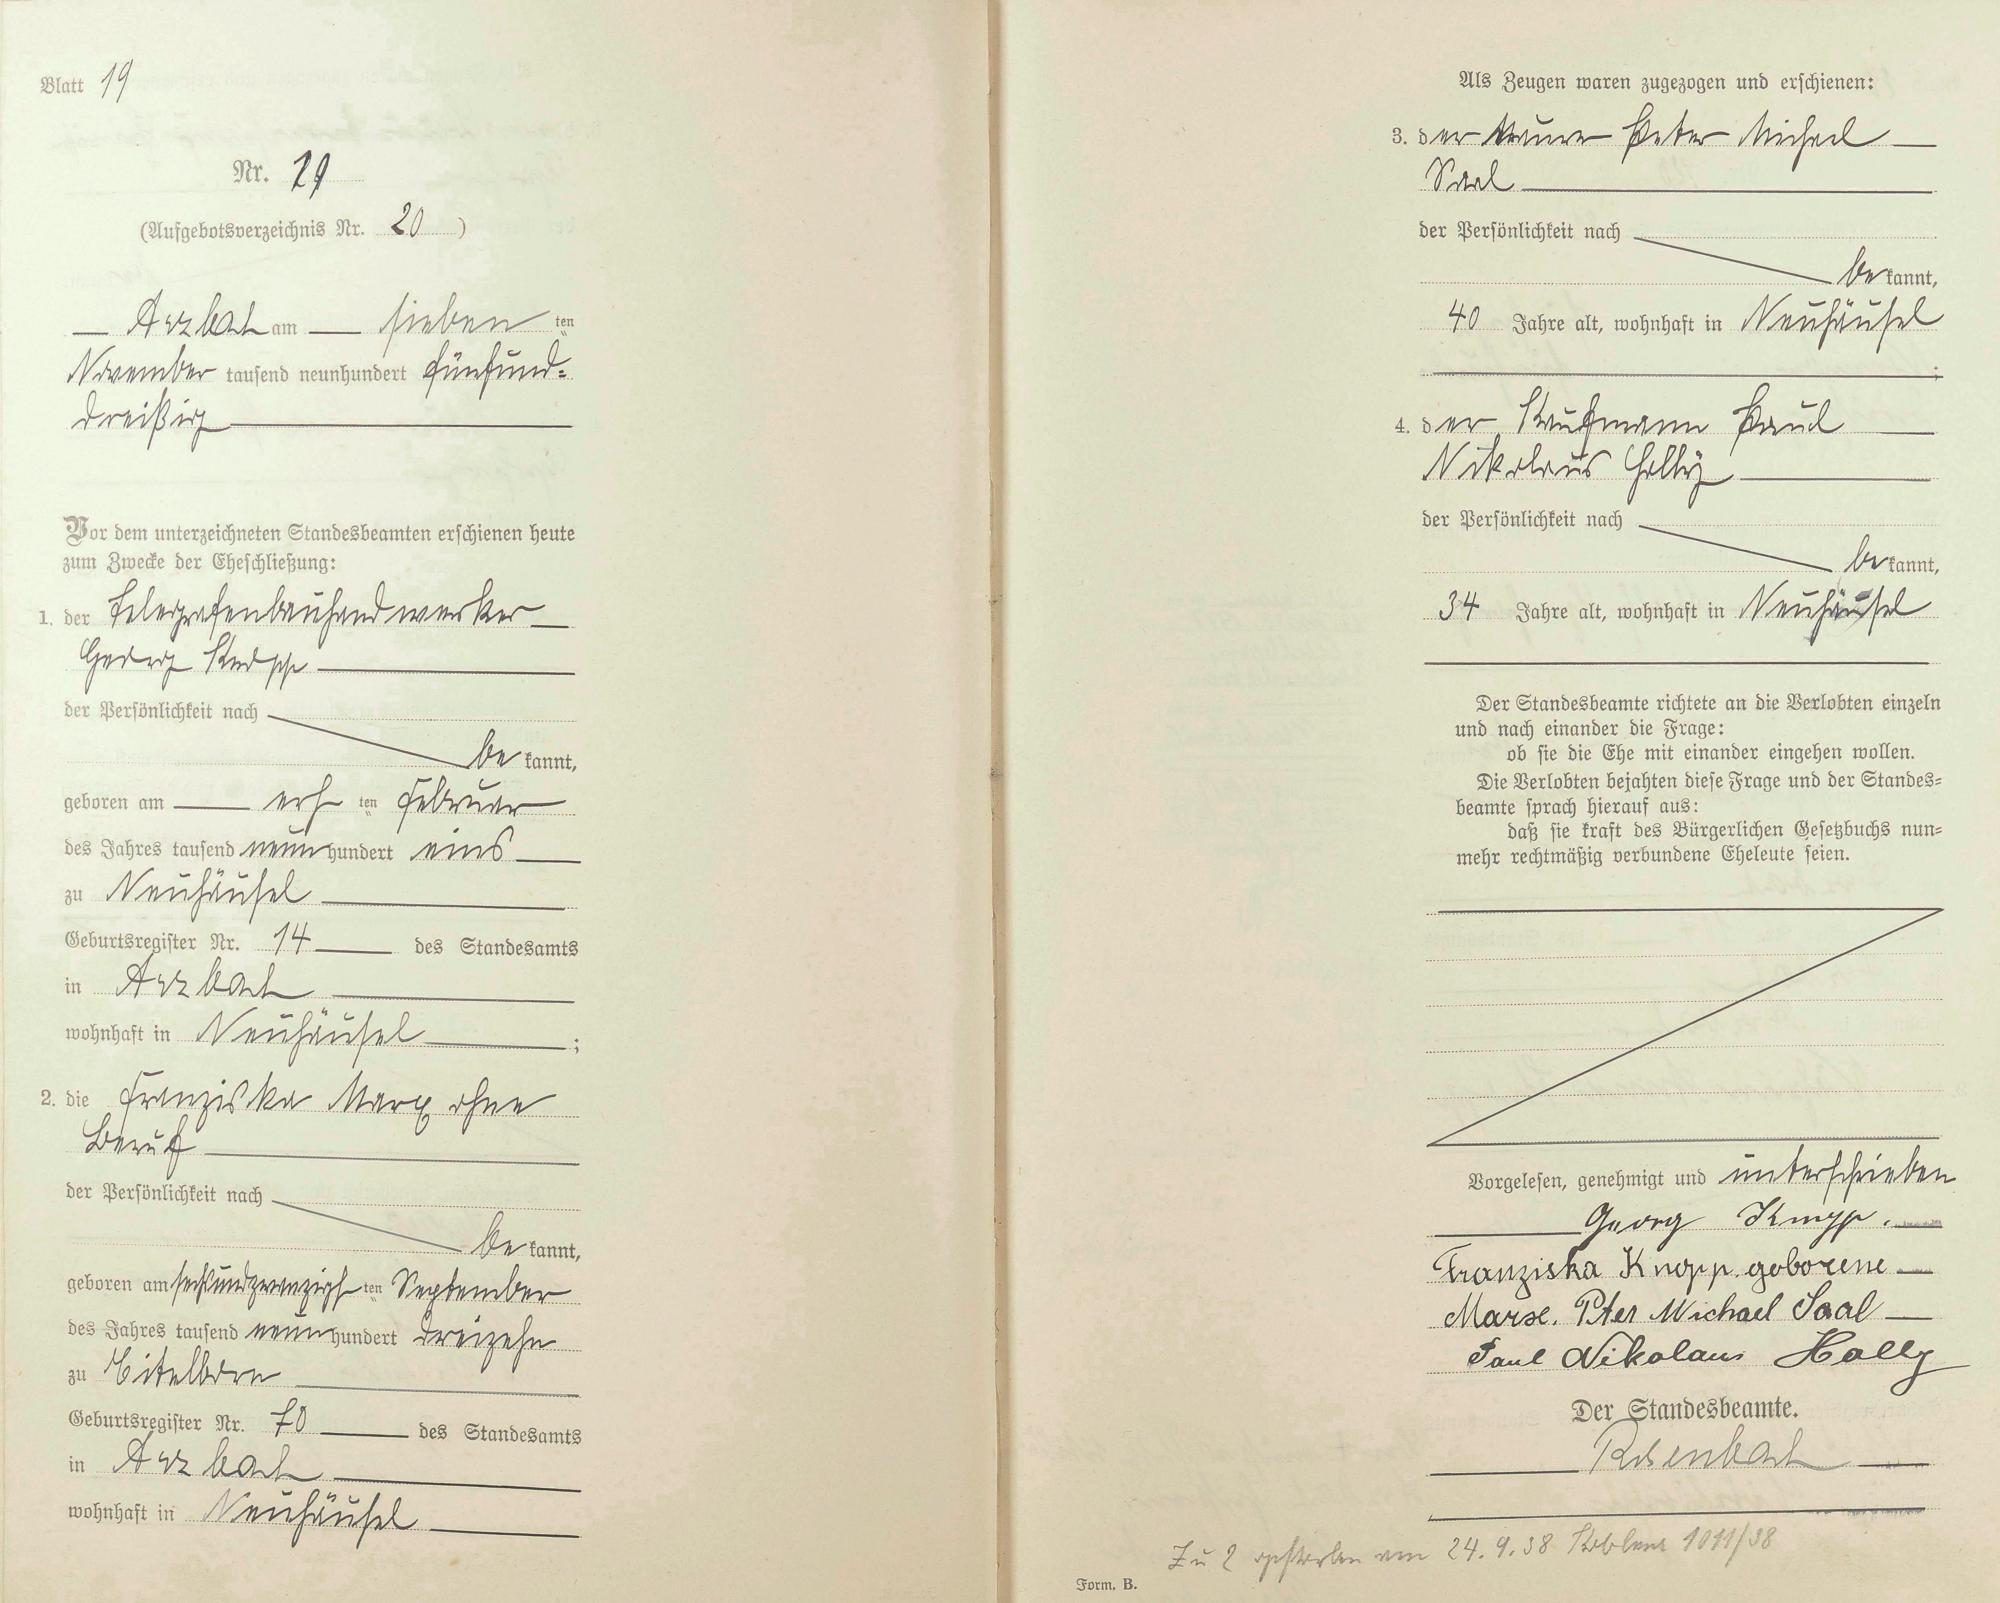 Blatt 19
Nr. 19
(Aufgebotsverzeichnis Nr. 20 )
Arzbach am sieben ten
November tausend neunhundert fünfund-
dreißig
Vor dem unterzeichneten Standesbeamten erschienen heute
zum Zwecke der Eheschließung:
1. der Telegrafenbauhandwerker
Georg Knopp
der Persönlichkeit nach
be kannt,
geboren am erst ten Februar
des Jahres tausend neun hundert eins
zu Neuhäusel
Geburtsregister Nr. 14 des Standesamts
in Arzbach
wohnhaft in Neuhäusel ;
2. die Franziska Marx ohne
Beruf
der Persönlichkeit nach
be kannt,
geboren am sechsundzwanzigst ten September
des Jahres tausend neun hundert dreizehn
zu Eitelborn
Geburtsregister Nr. 70 des Standesamts
in Arzbach
wohnhaft in Neuhäusel
Als Zeugen waren zugezogen und erschienen:
3. der Maurer Peter Michael
Saal
der Persönlichkeit nach
be kannt,
40 Jahre alt, wohnhaft in Neuhäusel
;
4. der Kaufmann Paul
Nikolaus Holly
der Persönlichkeit nach
be kannt,
34 Jahre alt, wohnhaft in Neuhäusel
Der Standesbeamte richtete an die Verlobten einzeln
und nach einander die Frage:
ob sie die Ehe mit einander eingehen wollen.
Die Verlobten bejahten diese Frage und der Standes-
beamte sprach hierauf aus:
daß sie kraft des Bürgerlichen Gesetzbuchs nun-
mehr rechtmäßig verbundene Eheleute seien.
Vorgelesen, genehmigt und unterschrieben
Georg Knopp.
Franziska Knopp geborene
Marx. Peter Michael Saal
Paul Nikolaus Holly
Der Standesbeamte.
Rosenbach
Zu 2 gestorben am 24.9.38 Koblenz 1011/38
Form. B.